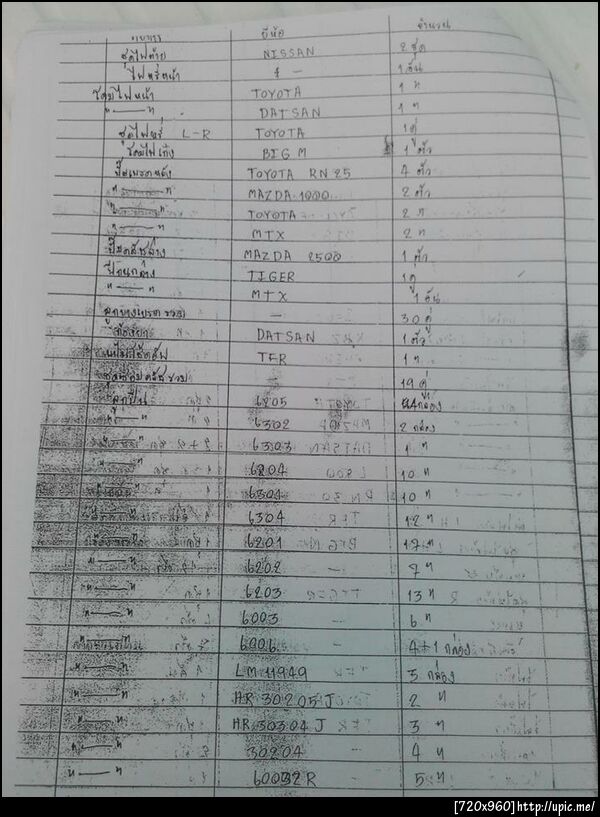 ยี่ห้อ จำนวน
ชุดไฟท้าย NISSAN 2 ชุด
ไฟหรี่หน้า 1 อัน
โคมไฟหน้า TOYOTA 1 "
" — " DATSAN 1 "
ชุดไฟหรี่ L-R TOYOTA 1 คู่
โคมไฟเก๋ง BIG M 1 ตัว
ปั๊มเบรคหลัง TOYOTA RN 25 4 ตัว
" " MAZDA 1000 2 ตัว
" " TOYOTA 2 "
" — " MTX 2 "
ปั๊มคลัชล่าง MAZDA 2500 1 ตัว
TIGER 1 คู่
" — " MTX 1 อัน
ลูกยางเบรค — 30 คู่
DATSAN 1 ตัว
TFR 1 "
— 19 คู่
ลูกปืน 6205 กล่อง
" — " 6302 2 กล่อง
" — " 6303 1 "
" — " 6204 10 "
" — " 6301 10 "
6304 12 "
6201 17 "
" — " 6202 7 "
" — " 6203 13 "
" — " 6003 6 "
6906 4+1 กล่อง
" — " LM 11949 3 กล่อง
" — " HR 30205 J 2 "
" — " HR 30304 J 3 "
" — " 30204 4 "
" — " 60032 R 5 "
[720x960] http://upic.me/